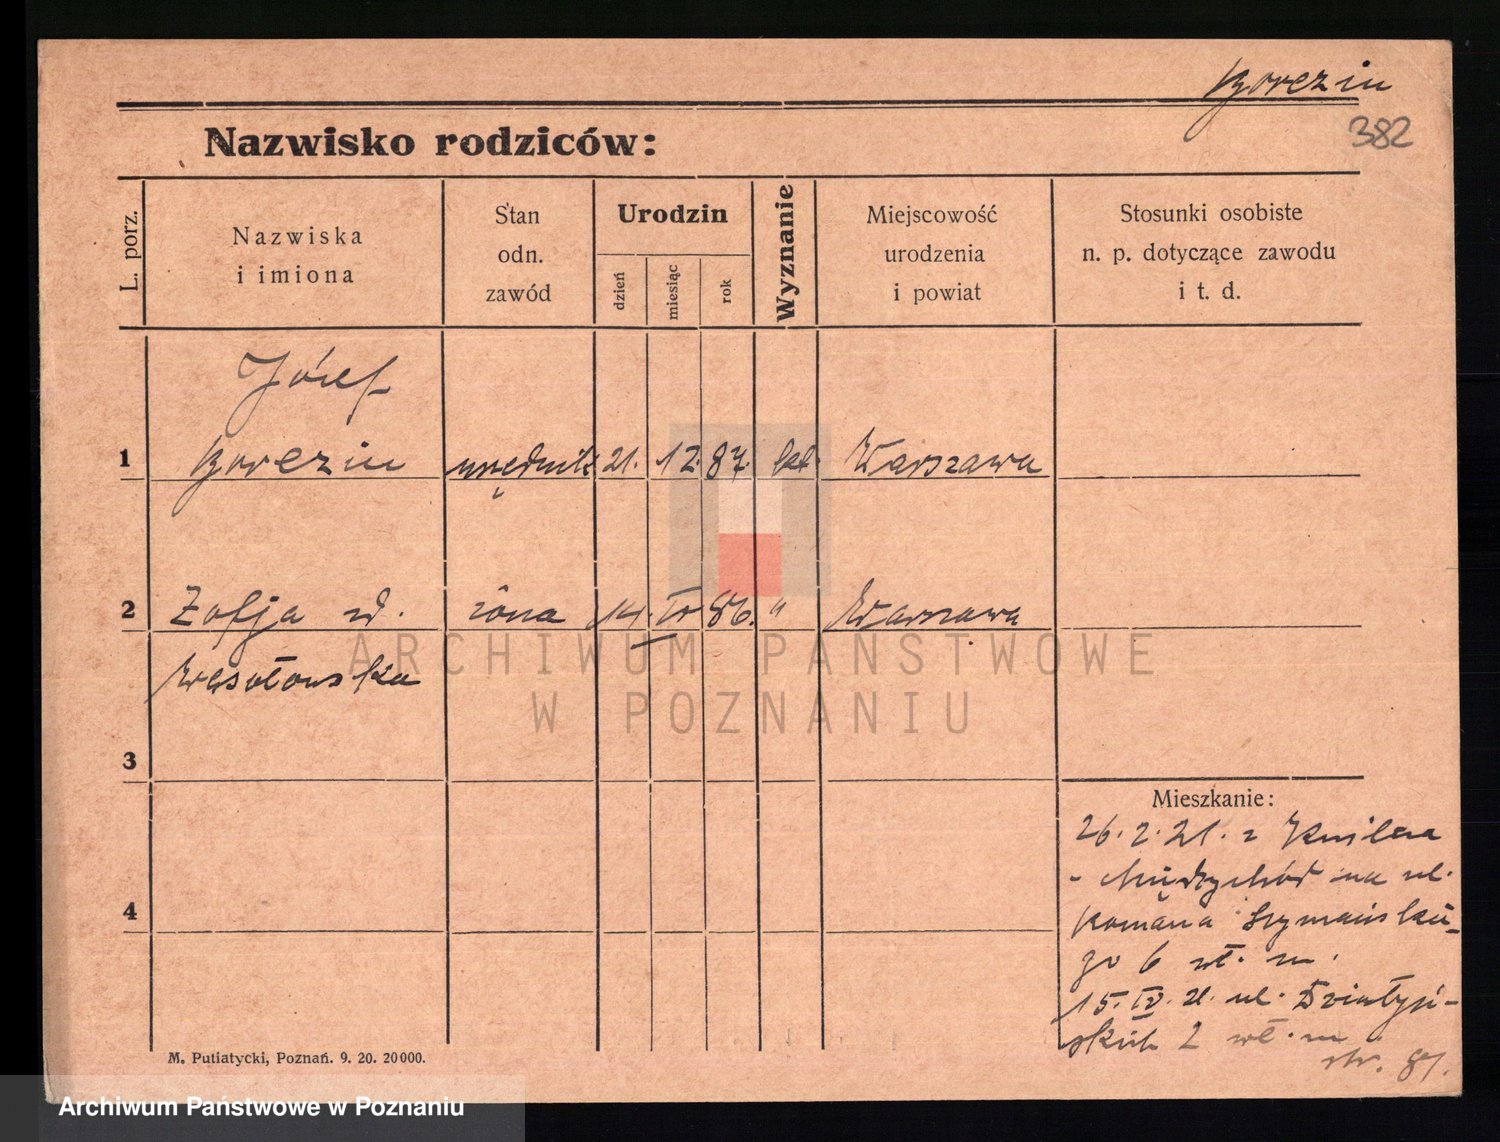 Borezin
382
Nazwisko rodziców:
L. porz.
Nazwiska
i imiona
Stan
odn.
zawód
Urodzin
dzień
miesiąc
rok
Wyznanie
Miejscowość
urodzenia
i powiat
Stosunki osobiste
n. p. dotyczące zawodu
i t. d.
Józef
1 Borezin urzędnik 21. 12. 87. kat. Warszawa
2 Zofja zd. żona 14. IV 86. " Warszawa
Wesołowska
3
Mieszkanie:
26. 2. 21. z Kwilcza
- Międzychód na ul.
4
Romana Szymańskie-
go 6 wł. m.
15. IV. 21. ul. Działyń-
skich 2 wł. m
str. 87.
M. Putiatycki, Poznań. 9. 20. 20000.
ARCHIWUM PAŃSTWOWE
W POZNANIU
Archiwum Państwowe w Poznaniu